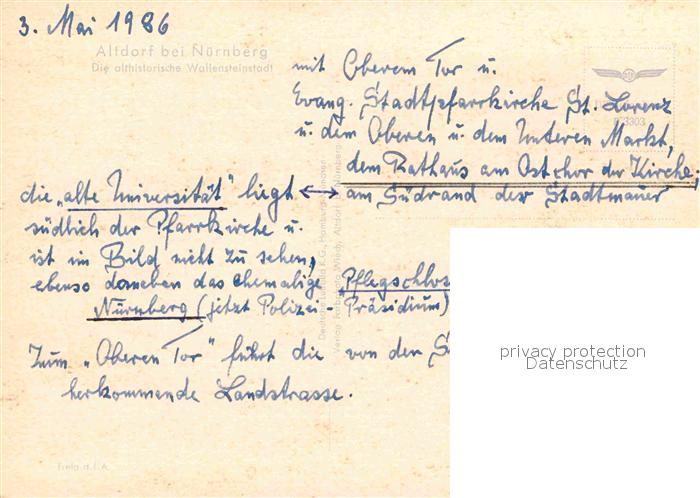 3. Mai 1986
Altdorf bei Nürnberg
Die althistorische Wallensteinstadt
mit Oberem Tor u.
Evang. Stadtpfarrkirche St. Lorenz
u. dem Oberen u. dem Unteren Markt,
dem Rathaus am Ostchor der Kirche;
die „alte Universität" liegt ↔ am Südrand der Stadtmauer
südlich der Pfarrkirche u.
ist im Bild nicht zu sehen,
ebenso daneben das ehemalige Pflegschlos
Nürnberg (jetzt Polizei-Präsidium)
Zum „Oberen Tor" führt die von der S
herkommende Landstrasse.
privacy protection
Datenschutz